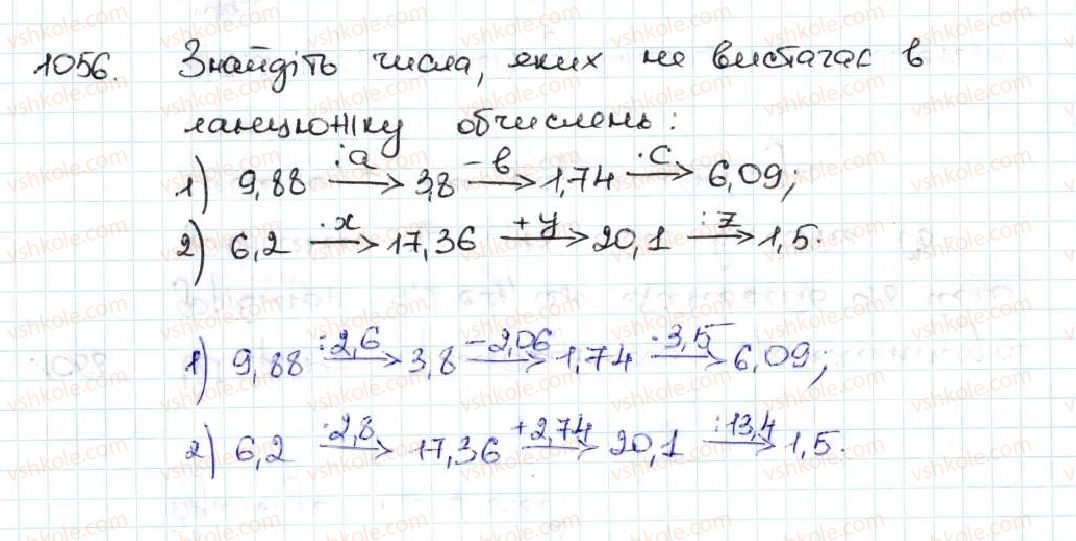 1056. Знайдіть числа, яких не вистачає в
ланцюжку обчислень:
1) 9,88 :a→ 3,8 −в→ 1,74 ·c→ 6,09;
2) 6,2 ·x→ 17,36 +y→ 20,1 :z→ 1,5.
1) 9,88 :2,6→ 3,8 −2,06→ 1,74 ·3,5→ 6,09;
2) 6,2 ·2,8→ 17,36 +2,74→ 20,1 :13,4→ 1,5.
vshkole.com